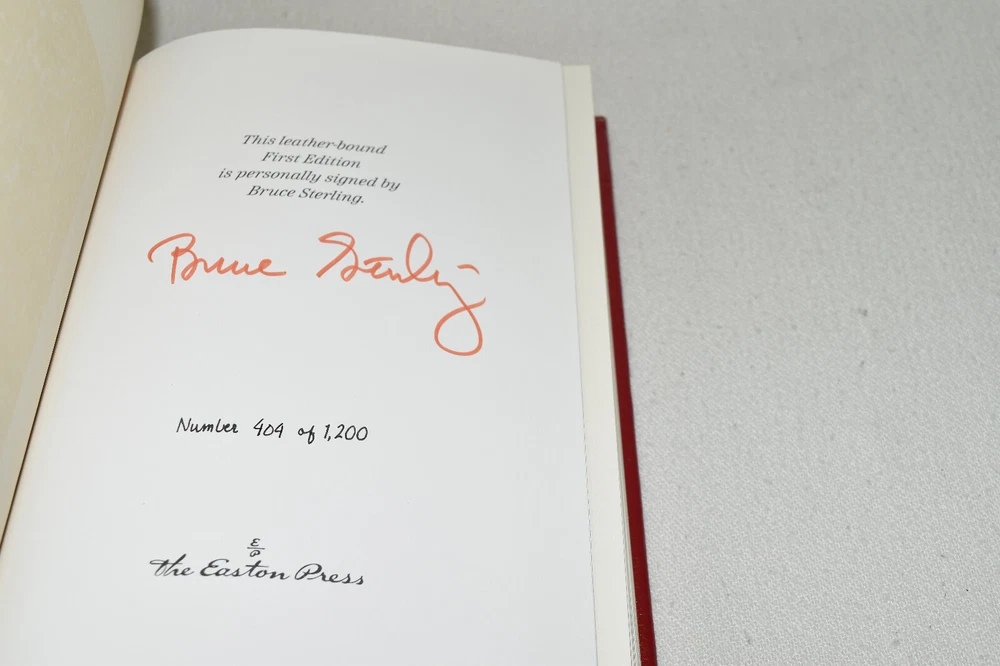 This leather-bound
First Edition
is personally signed by
Bruce Sterling.
Bruce Sterling
Number 404 of 1,200
E/P
the Easton Press